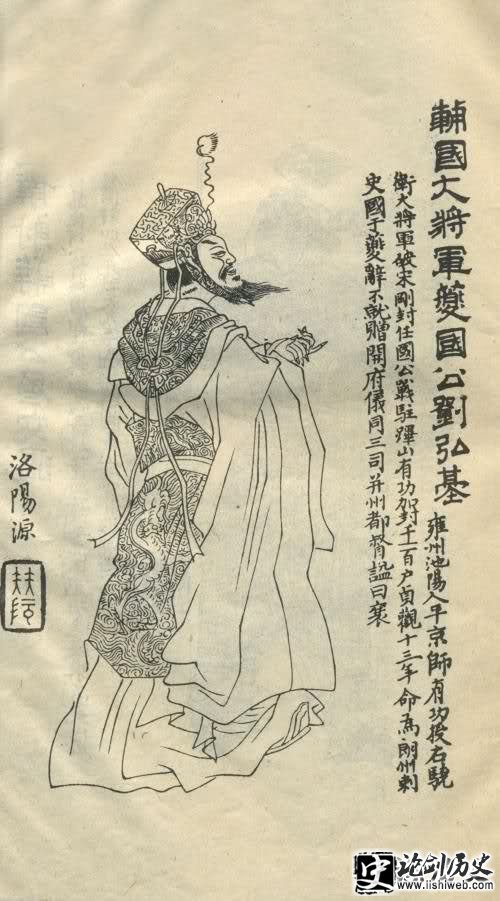 輔國大將軍夔國公劉弘基 雍州池陽人平京師有功授右驍
衛大將軍破宋剛封任國公戰駐蹕山有功加封千一百户貞觀十三年命爲朗州刺
史國于夔辭不就贈開府儀同三司并州都督謚曰襄
洛陽源
史 论剑历史
www.lishiweb.com